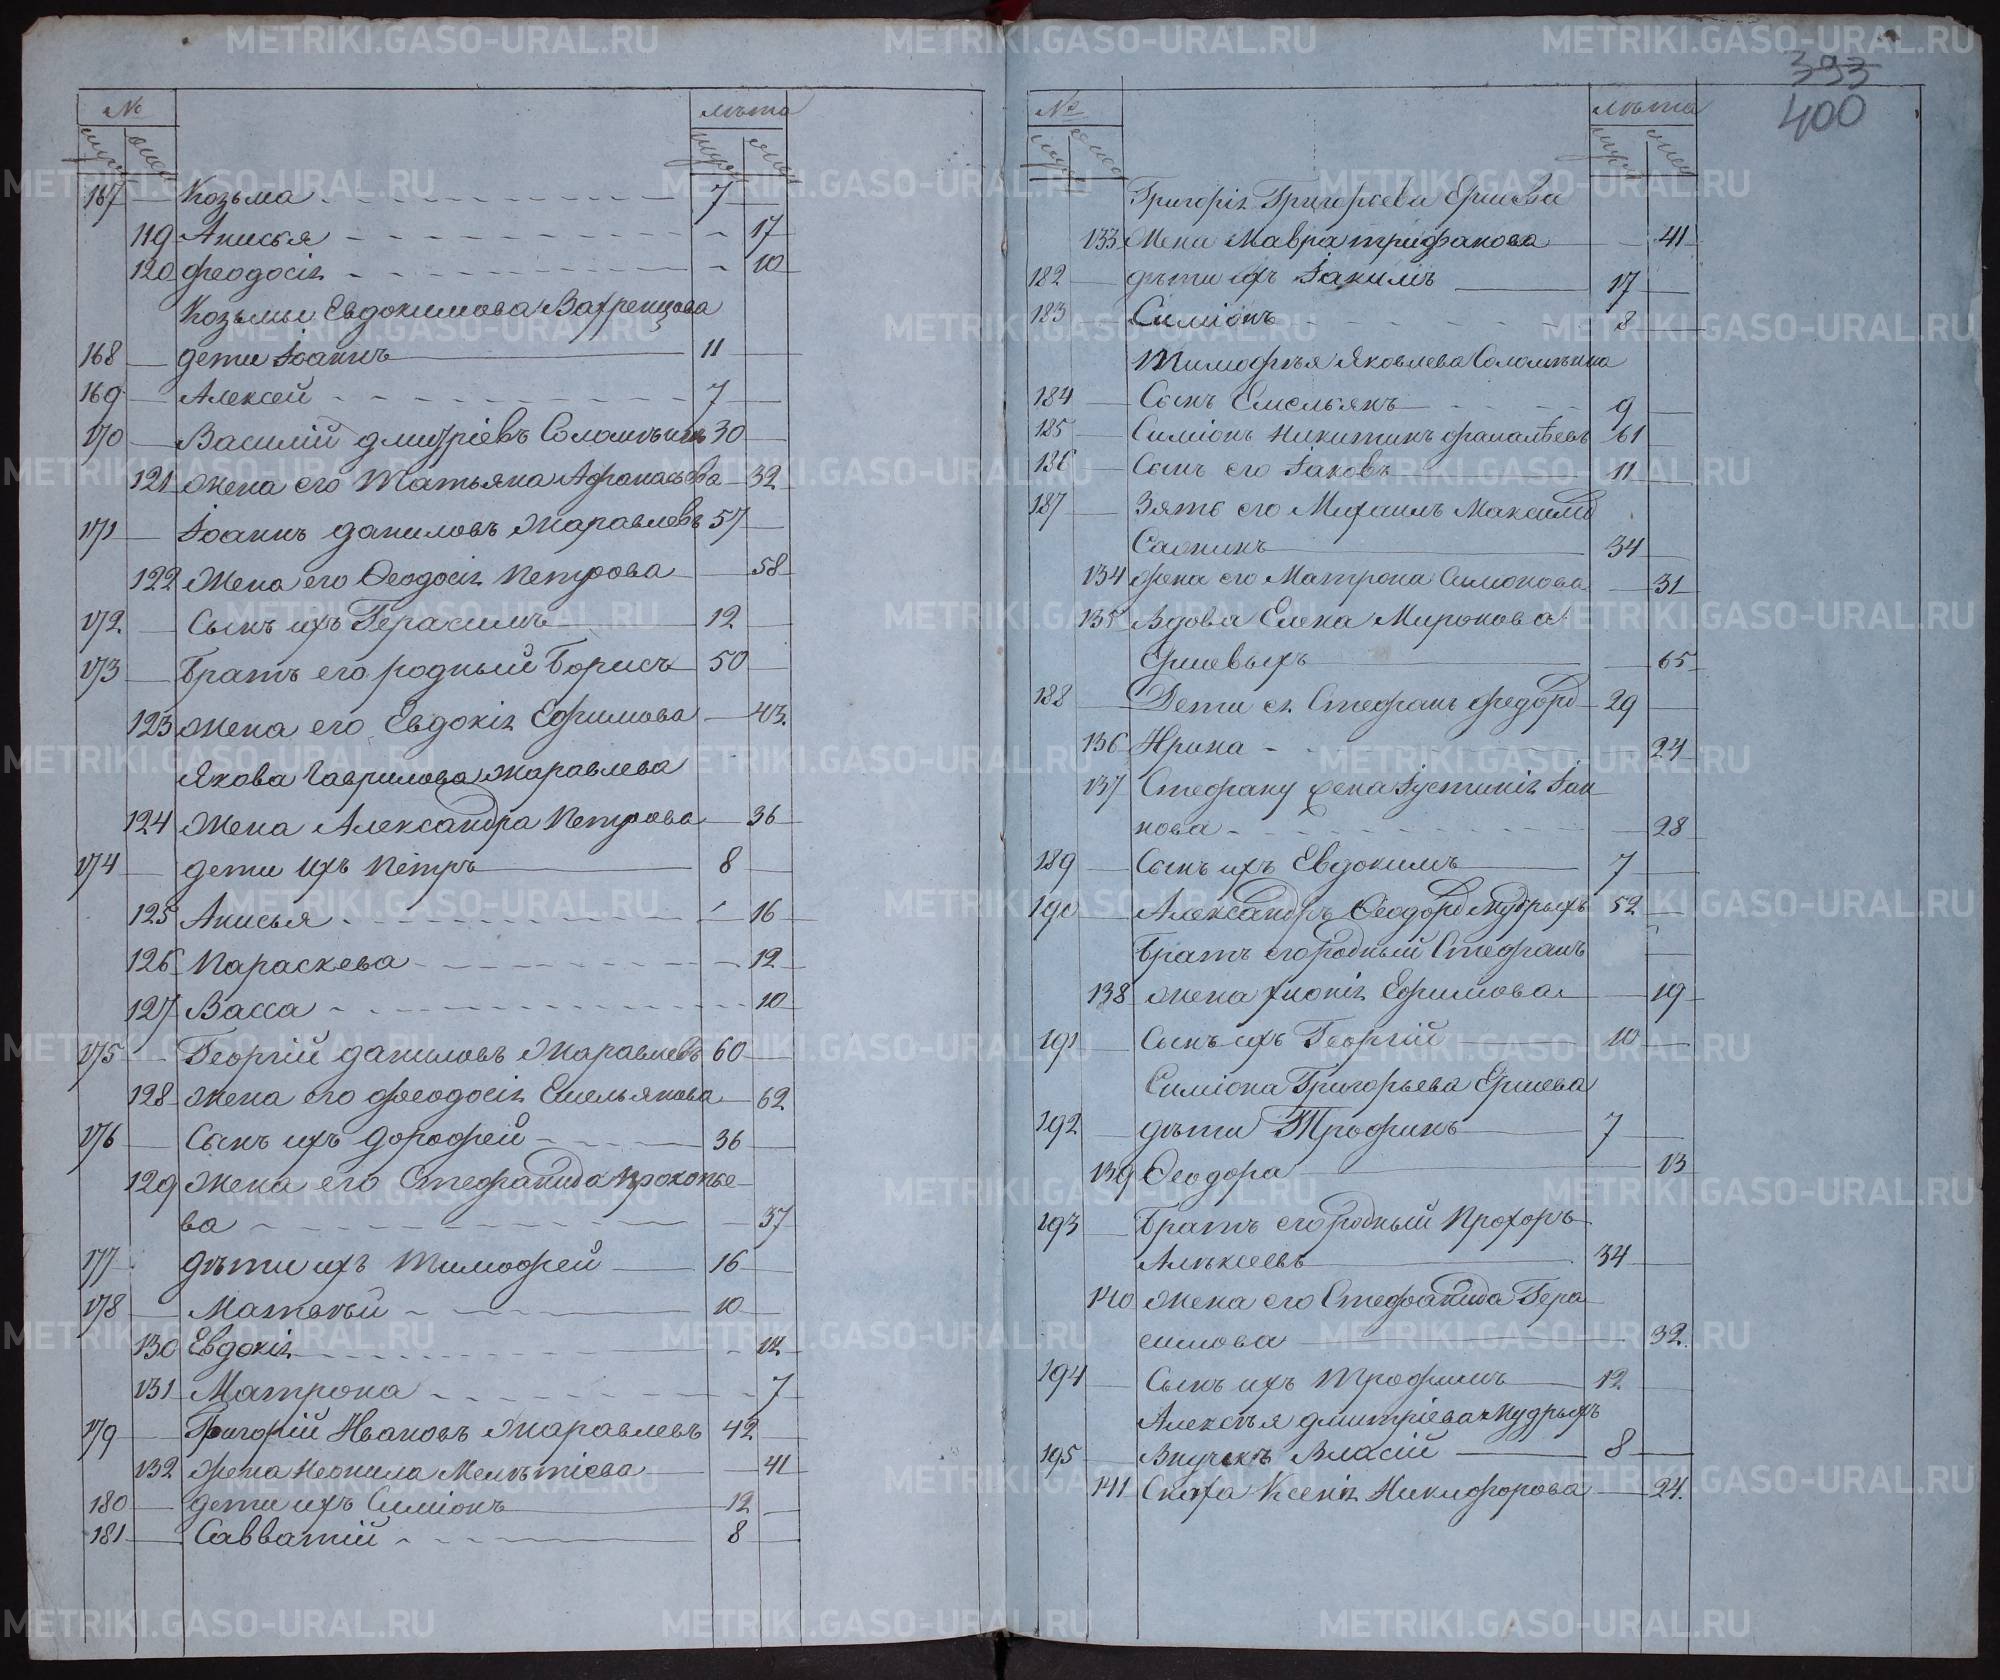 № лѣта
муж жен муж жен
167 Козьма 7
119 Анисья 17
120 Феодосія 10
Козьмы Евдокимова Вахренцова
168 дети Іоаннъ 11
169 Алексей 7
170 Василій Дмитріевъ Соломѣинъ 30
121 Жена его Татьяна Афонасьева 32
171 Іоаннъ Даниловъ Жаравлевъ 57
122 Жена его Ѳеодосія Петрова 58
172 Сынъ ихъ Герасимъ 12
173 Братъ его родный Борисъ 50
123 Жена его Евдокія Ефимова 43
Якова Гаврилова Жаравлева
124 Жена Александра Петрова 36
174 дети ихъ Петръ 8
125 Анисья 16
126 Параскева 12
127 Васса 10
175 Георгій Даниловъ Жаравлевъ 60
128 Жена его Феодосія Емельянова 62
176 Сынъ ихъ Дорофей 36
129 Жена его Стефанида Прокопье-
ва 37
177 Дѣти ихъ Тимофей 16
178 Матвѣй 10
130 Евдокія 12
131 Матрона 7
179 Григорій Ивановъ Жаравлевъ 42
132 Жена Неонила Мелѣтіева 41
180 дети ихъ Симіонъ 12
181 Савватій 8
393
400
№ лѣта
муж жен муж жен
Григорія Григорьева Ершева
133 Жена Мавра Трифанова 41
182 дѣти ихъ Іакимъ 17
183 Симіонъ 8
Тимофѣя Яковлева Соломѣина
184 Сынъ Емельянъ 9
185 Симіонъ Никитинъ 61
186 Сынъ его Іаковъ 11
187 Зять его Михаилъ Максимо
Салкинъ 34
134 Жена его Матрона Симіонова 31
135 Вдова Елена Миронова
Ершевыхъ 65
188 Дети ея Стефанъ Федоро 29
136 Ирина 24
137 Стефану жена Іустинія Іан
нова 28
189 Сынъ ихъ Евдокимъ 7
190 Александръ Ѳеодоро Мудрыхъ 52
Братъ его родный Стефанъ
138 Жена Хіонія Ефимова 19
191 Сынъ ихъ Георгій 10
Симіона Григорьева Ершева
192 дѣти Трофимъ 7
139 Ѳеодора 13
193 Братъ его родный Прохоръ
Алѣксеевъ 34
140 Жена его Стефанида Гера
симова 32
194 Сынъ ихъ Трофимъ 12
Алексѣя Дмитріева Мудрыхъ
195 Внучекъ Власій 8
141 Сноха Ксенія Никифорова 24